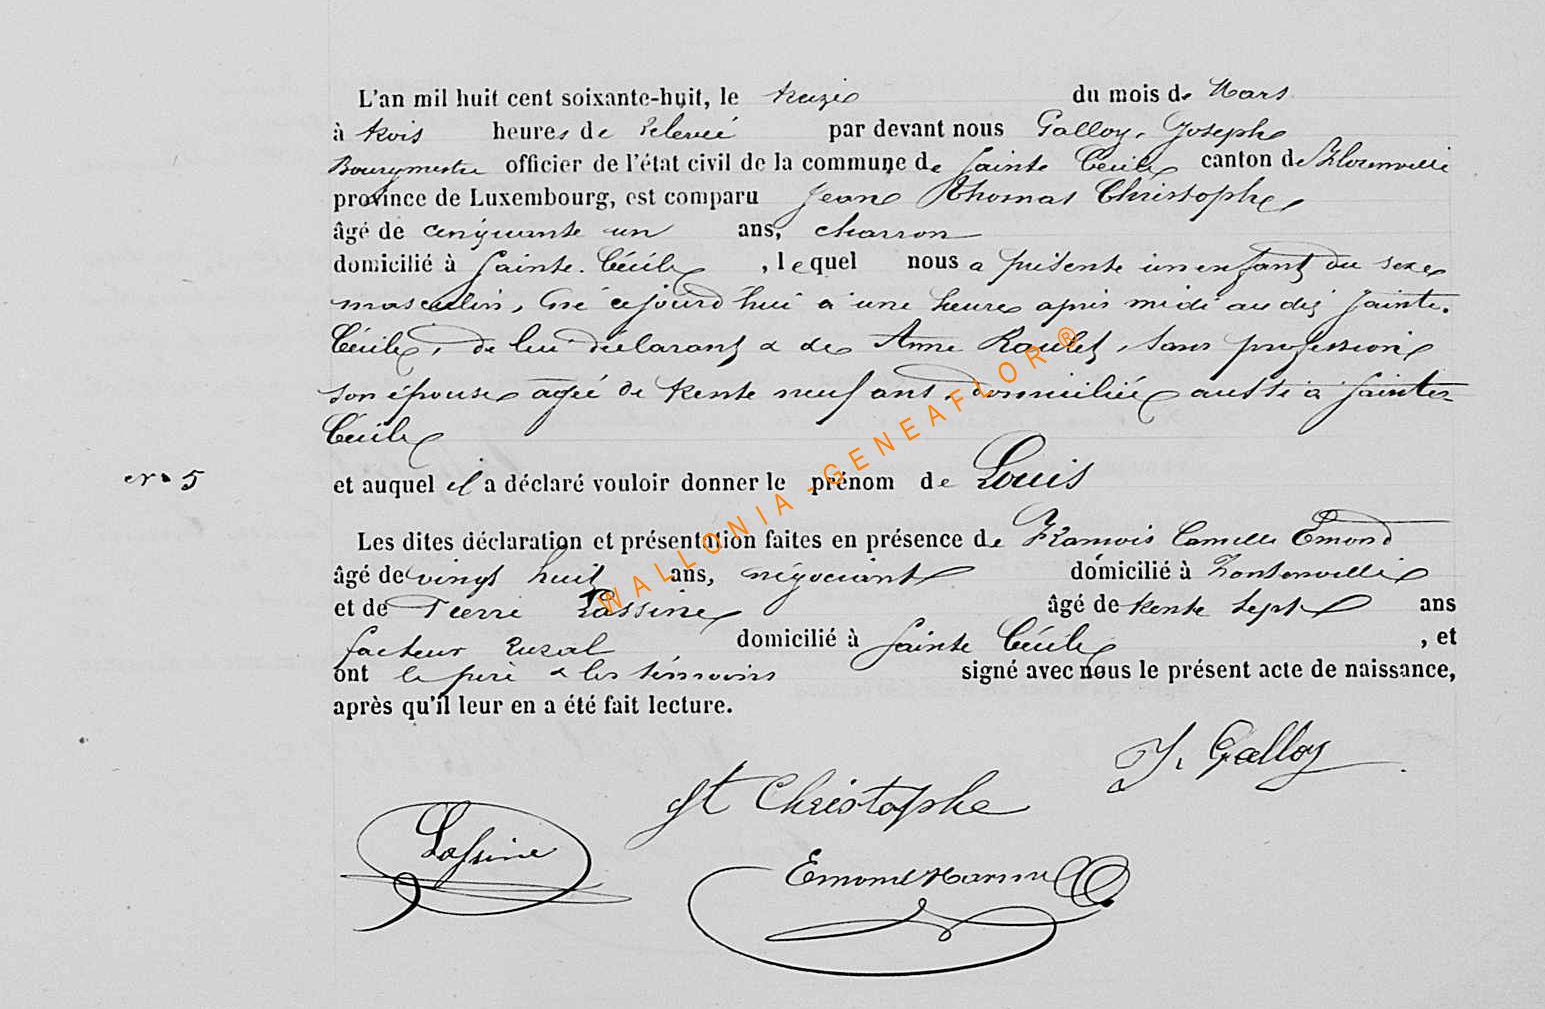 L'an mil huit cent soixante-huit, le treize du mois de Mars
à trois heures de relevée par devant nous Galloy, Joseph
Bourgmestre officier de l'état civil de la commune de Sainte Cécile canton de Florenville
province de Luxembourg, est comparu Jean Thomas Christophe
âgé de cinquante un ans, charron
domicilié à Sainte Cécile, lequel nous a présenté un enfant du sexe
masculin, né cejourd'hui à une heure après midi au dit Sainte
Cécile, de lui déclarant & de Anne Raulet, sans profession
son épouse agée de trente neuf ans, domiciliée aussi à Sainte
Cécile
N° 5
et auquel il a déclaré vouloir donner le prénom de Louis
Les dites déclaration et présentation faites en présence de François Camille Emond
âgé de vingt huit ans, négociant domicilié à Fontenoille
et de Pierre Lassine âgé de trente sept ans
facteur rural domicilié à Sainte Cécile, et
ont le père & les témoins signé avec nous le présent acte de naissance,
après qu'il leur en a été fait lecture.
J. Galloy
Jt Christophe
Lassine
Emond
WALLONIA-GENEAFLOR®